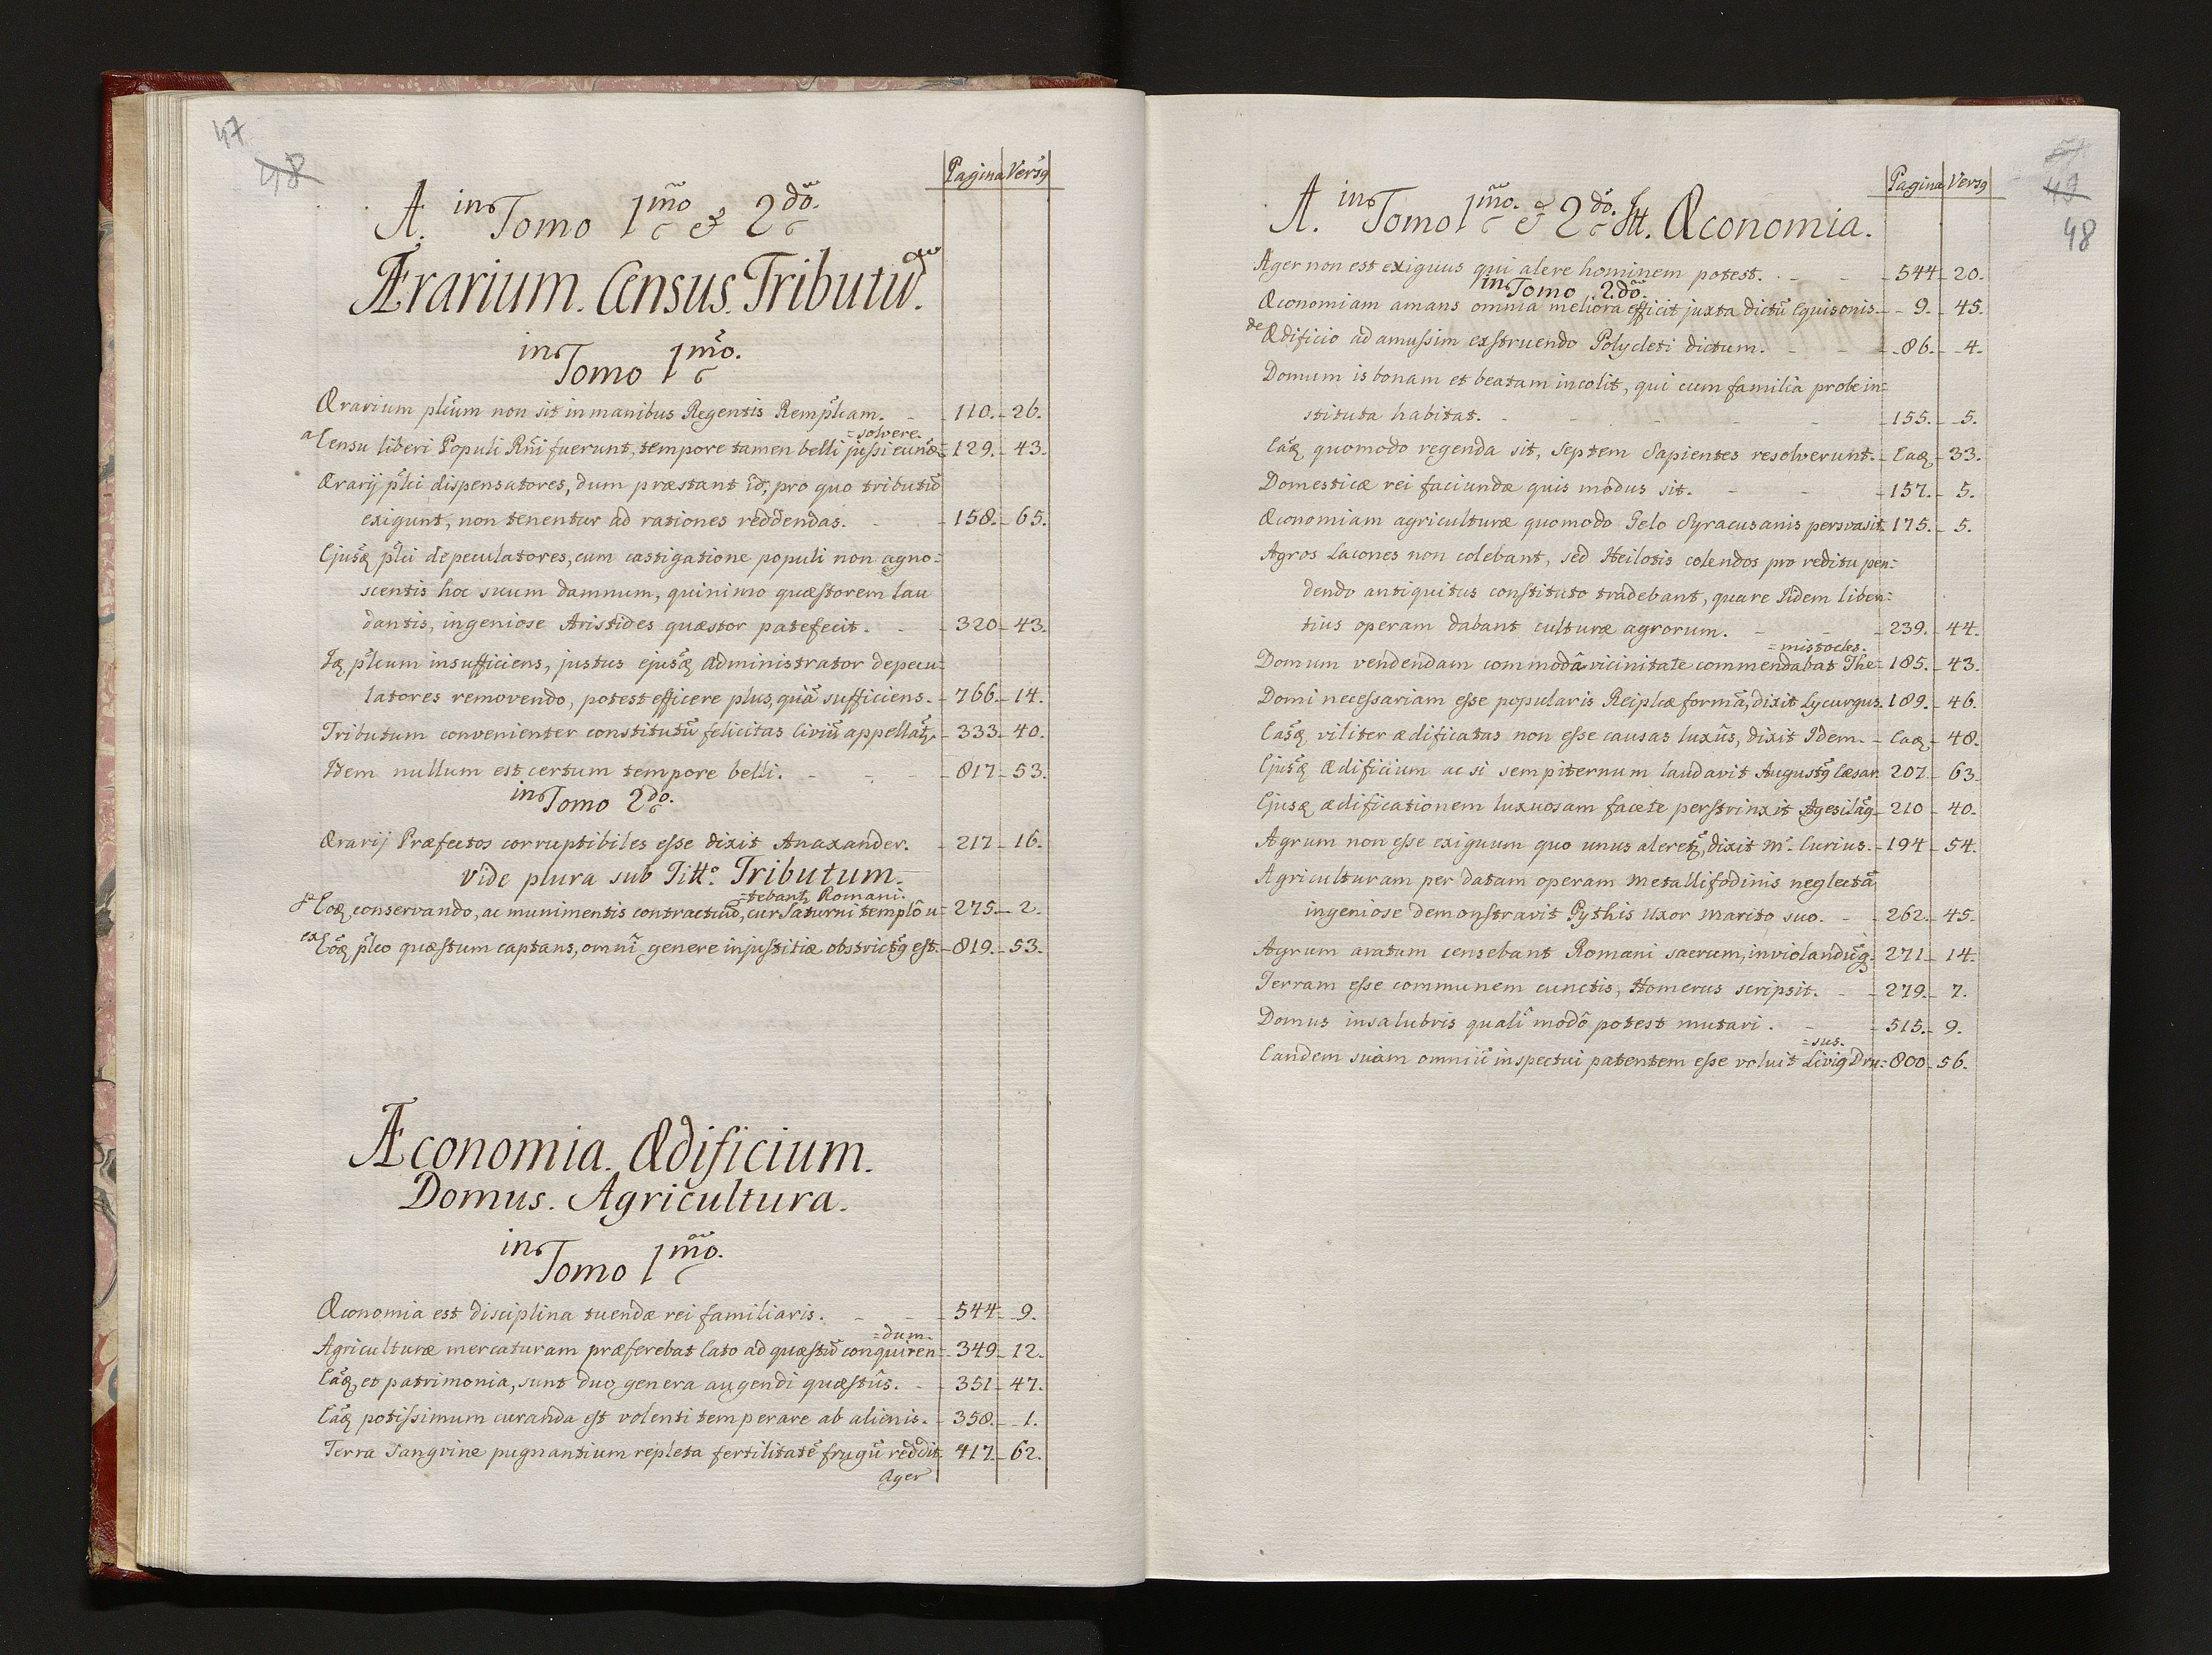 47
48
Pagina Versꝰ
A. in Tomo 1mõ & 2dõ.
Ærarium. Census. Tributũ.
in Tomo 1mõ.
Ærarium pl̃cum non sit in manibus Regentis Rempl̃cam. - 110. - 26.
=solvere.
a Censu liberi Populi Rñi fuerunt, tempore tamen belli jussi eunđ= 129. - 43.
Ærarij pl̃ci dispensatores, dum præstant id, pro quo tributũ
exigunt, non tenentur ad rationes reddendas. - 158. - 65.
Ejusđ pl̃ci depeculatores, cum castigatione populi non agno=
scentis hoc suum damnum, quinimo quæstorem lau
dantis, ingeniose Aristides quæstor patefecit. - 320 - 43.
Iđ pl̃cum insufficiens, justus ejusđ administrator depecu=
latores removendo, potest efficere plus, quã sufficiens. - 766. - 14.
Tributum convenienter constitutũ felicitas Civiũ appellatꝛ. - 333 - 40.
Idem nullum est certum tempore belli. - 817 - 53.
in Tomo 2do.
Ærarij Præfectos corruptibiles esse dixit Anaxander. - 217 - 16.
vide plura sub Titto. Tributum.
=tebantꝛ Romani.
de Eođ conservando, ac munimentis contractuũ, cur Saturni templô u= 275. - 2.
ex Eođ pl̃co quæstum captans, omni genere injustitiæ obstrictꝰ est. - 819. - 53.
Æconomia. Ædificium.
Domus. Agricultura.
in Tomo 1mõ.
Æconomia est disciplina tuendæ rei familiaris. - 544 - 9.
=dum.
Agriculturæ mercaturam præferebat Cato ad quæstũ conquiren= - 349 - 12.
Eađ, et patrimonia, sunt duo genera augendi quæstûs. - 351 - 47.
Eađ potissimum curanda est volenti temperare ab alienis. - 358. - 1.
Terra Sangvine pugnantium repleta fertilitatẽ frugũ reddit. 417. - 62.
Ager
49
48
Pagina Versꝰ
A. in Tomo 1mõ. & 2dõ. Stt. Æconomia.
Ager non est exiguus qui alere hominem potest. - 544 - 20.
in Tomo 2dõ.
Æconomiam amans omnia meliora efficit juxta dictũ Equisonis. - 9. - 45.
de Ædificio ad amussim exstruendo Polycleti dictum. - 86. - 4.
Domum is bonam et beatam incolit, qui cum familia probe in=
stituta habitat. - 155. - 5.
Eađ quomodo regenda sit, Septem Sapientes resolverunt. - Eađ - 33.
Domesticæ rei faciundæ quis modus sit. - 157. - 5.
Æconomiam agriculturæ quomodo Gelo Syracusanis persvasit. 175. - 5.
Agros Lacones non colebant, sed Heilotis colendos pro reditu pen=
dendo antiquitus constituto tradebant, quare Iidem liben=
tius operam dabant culturæ agrorum. - 239. - 44.
=mistocles.
Domum vendendam commodâ vicinitate commendabat The= 185. - 43.
Domi necessariam esse popularis Reiplcæ formã, dixit Lycurgus. 189. - 46.
Easđ viliter ædificatas non esse causas luxûs, dixit Idem. - Eađ - 48.
Ejusđ Ædificium ac si sempiternum laudavit Augustꝰ Cæsar. 207 - 63.
Ejusđ ædificationem luxuosam facete perstrinxit Agesilaꝰ - 210 - 40.
Agrum non esse exiguum quo unus aleretꝛ, dixit M. Curius. - 194 - 54.
Agriculturam per datam operam metallifodinis neglectã
ingeniose demonstravit Pythis Uxor Marito suo. - 262. - 45.
Agrum aratum censebant Romani sacrum, inviolandũqꝫ. 271 - 14.
Terram esse communem cunctis, Homerus scripsit. - 279. - 7.
Domus insalubris quali modô potest mutari. - 515. - 9.
=sus.
Eandem suam omniũ inspectui patentem esse voluit Liviꝰ Dru= 800 - 56.